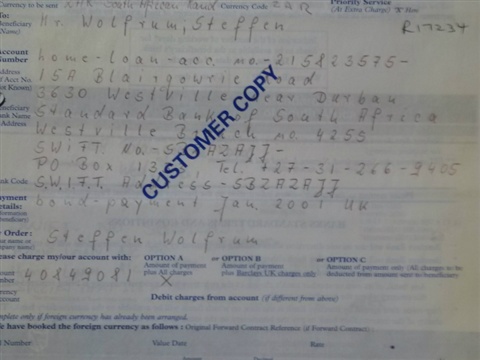 cy to be sent ZAR South African Rand Currency Code ZAR Priority Service
(At Extra Charge) "X" Here
To:
Beneficiary
(Name) Mr. Wolfrum, Steffen R17234
Account
Number home-loan-acc. no.-215823575-
Address
of Acct No.
not Known) 15A Blairgowrie Road
3630 Westville near Durban
Beneficiary
Bank Name
Address Standard Bank of South Africa
Westville Branch no. 4255
S.W.I.F.T. No.-
PO Box Tel. +27-31-266-9405
Bank Code S.W.I.F.T. Address-SBZAZAJJ
Payment
Details:
Information
beneficiary) bond-payment Jan. 2001 UK
CUSTOMER COPY
Order:
name or
company name) Steffen Wolfrum
Please charge my/our account with: OPTION A or OPTION B or OPTION C
Amount of payment
plus All charges Amount of payment
plus Barclays UK charges only Amount of payment only (All charges to be
deducted from amount sent to beneficiary)
40849081 X
Debit charges from account (if different from above)
Complete only if foreign currency has already been arranged.
We have booked the foreign currency as follows : Original Forward Contract Reference (if Forward Contract) :
Number Value Date Rate